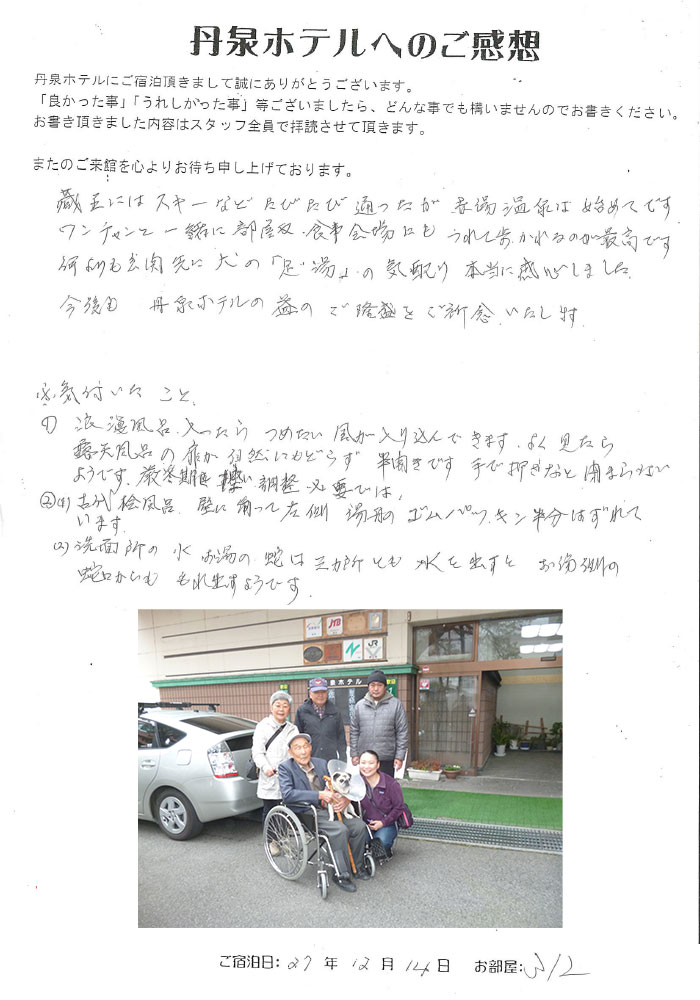 丹泉ホテルへのご感想
丹泉ホテルにご宿泊頂きまして誠にありがとうございます。
「良かった事」「うれしかった事」等ございましたら、どんな事でも構いませんのでお書きください。
お書き頂きました内容はスタッフ全員で拝読させて頂きます。
またのご来館を心よりお待ち申し上げております。
蔵王にはスキーなど たびたび 通ったが 赤湯温泉は 始めてです
ワンチャンと一緒に 部屋 食事会場にも つれて歩かれるのが最高です
何よりも玄関先に 犬の「足湯」の 気配り 本当に感心しました
今後も 丹泉ホテルの 益の ご隆盛を ご祈念 いたします
お気付いた こと
(1) 浪漫風呂 入ったら つめたい 風が入り込んできます よく見たら
露天風呂の 扉が 自然にもどらず 半開きです 手で押さないと 閉まらない
ようです 厳冬期 調整 必要では、
②(1) 古代桧風呂 壁に向って 左側 湯舟の ゴムパッキン半分はずれて
います
(2) 洗面所の 水 お湯の 蛇は 三か所とも 水を出すと お湯側の
蛇口からも もれ出すようです.
泉ホテル
JTB
JR
ご宿泊日: 27 年 12 月 14 日 お部屋: 312